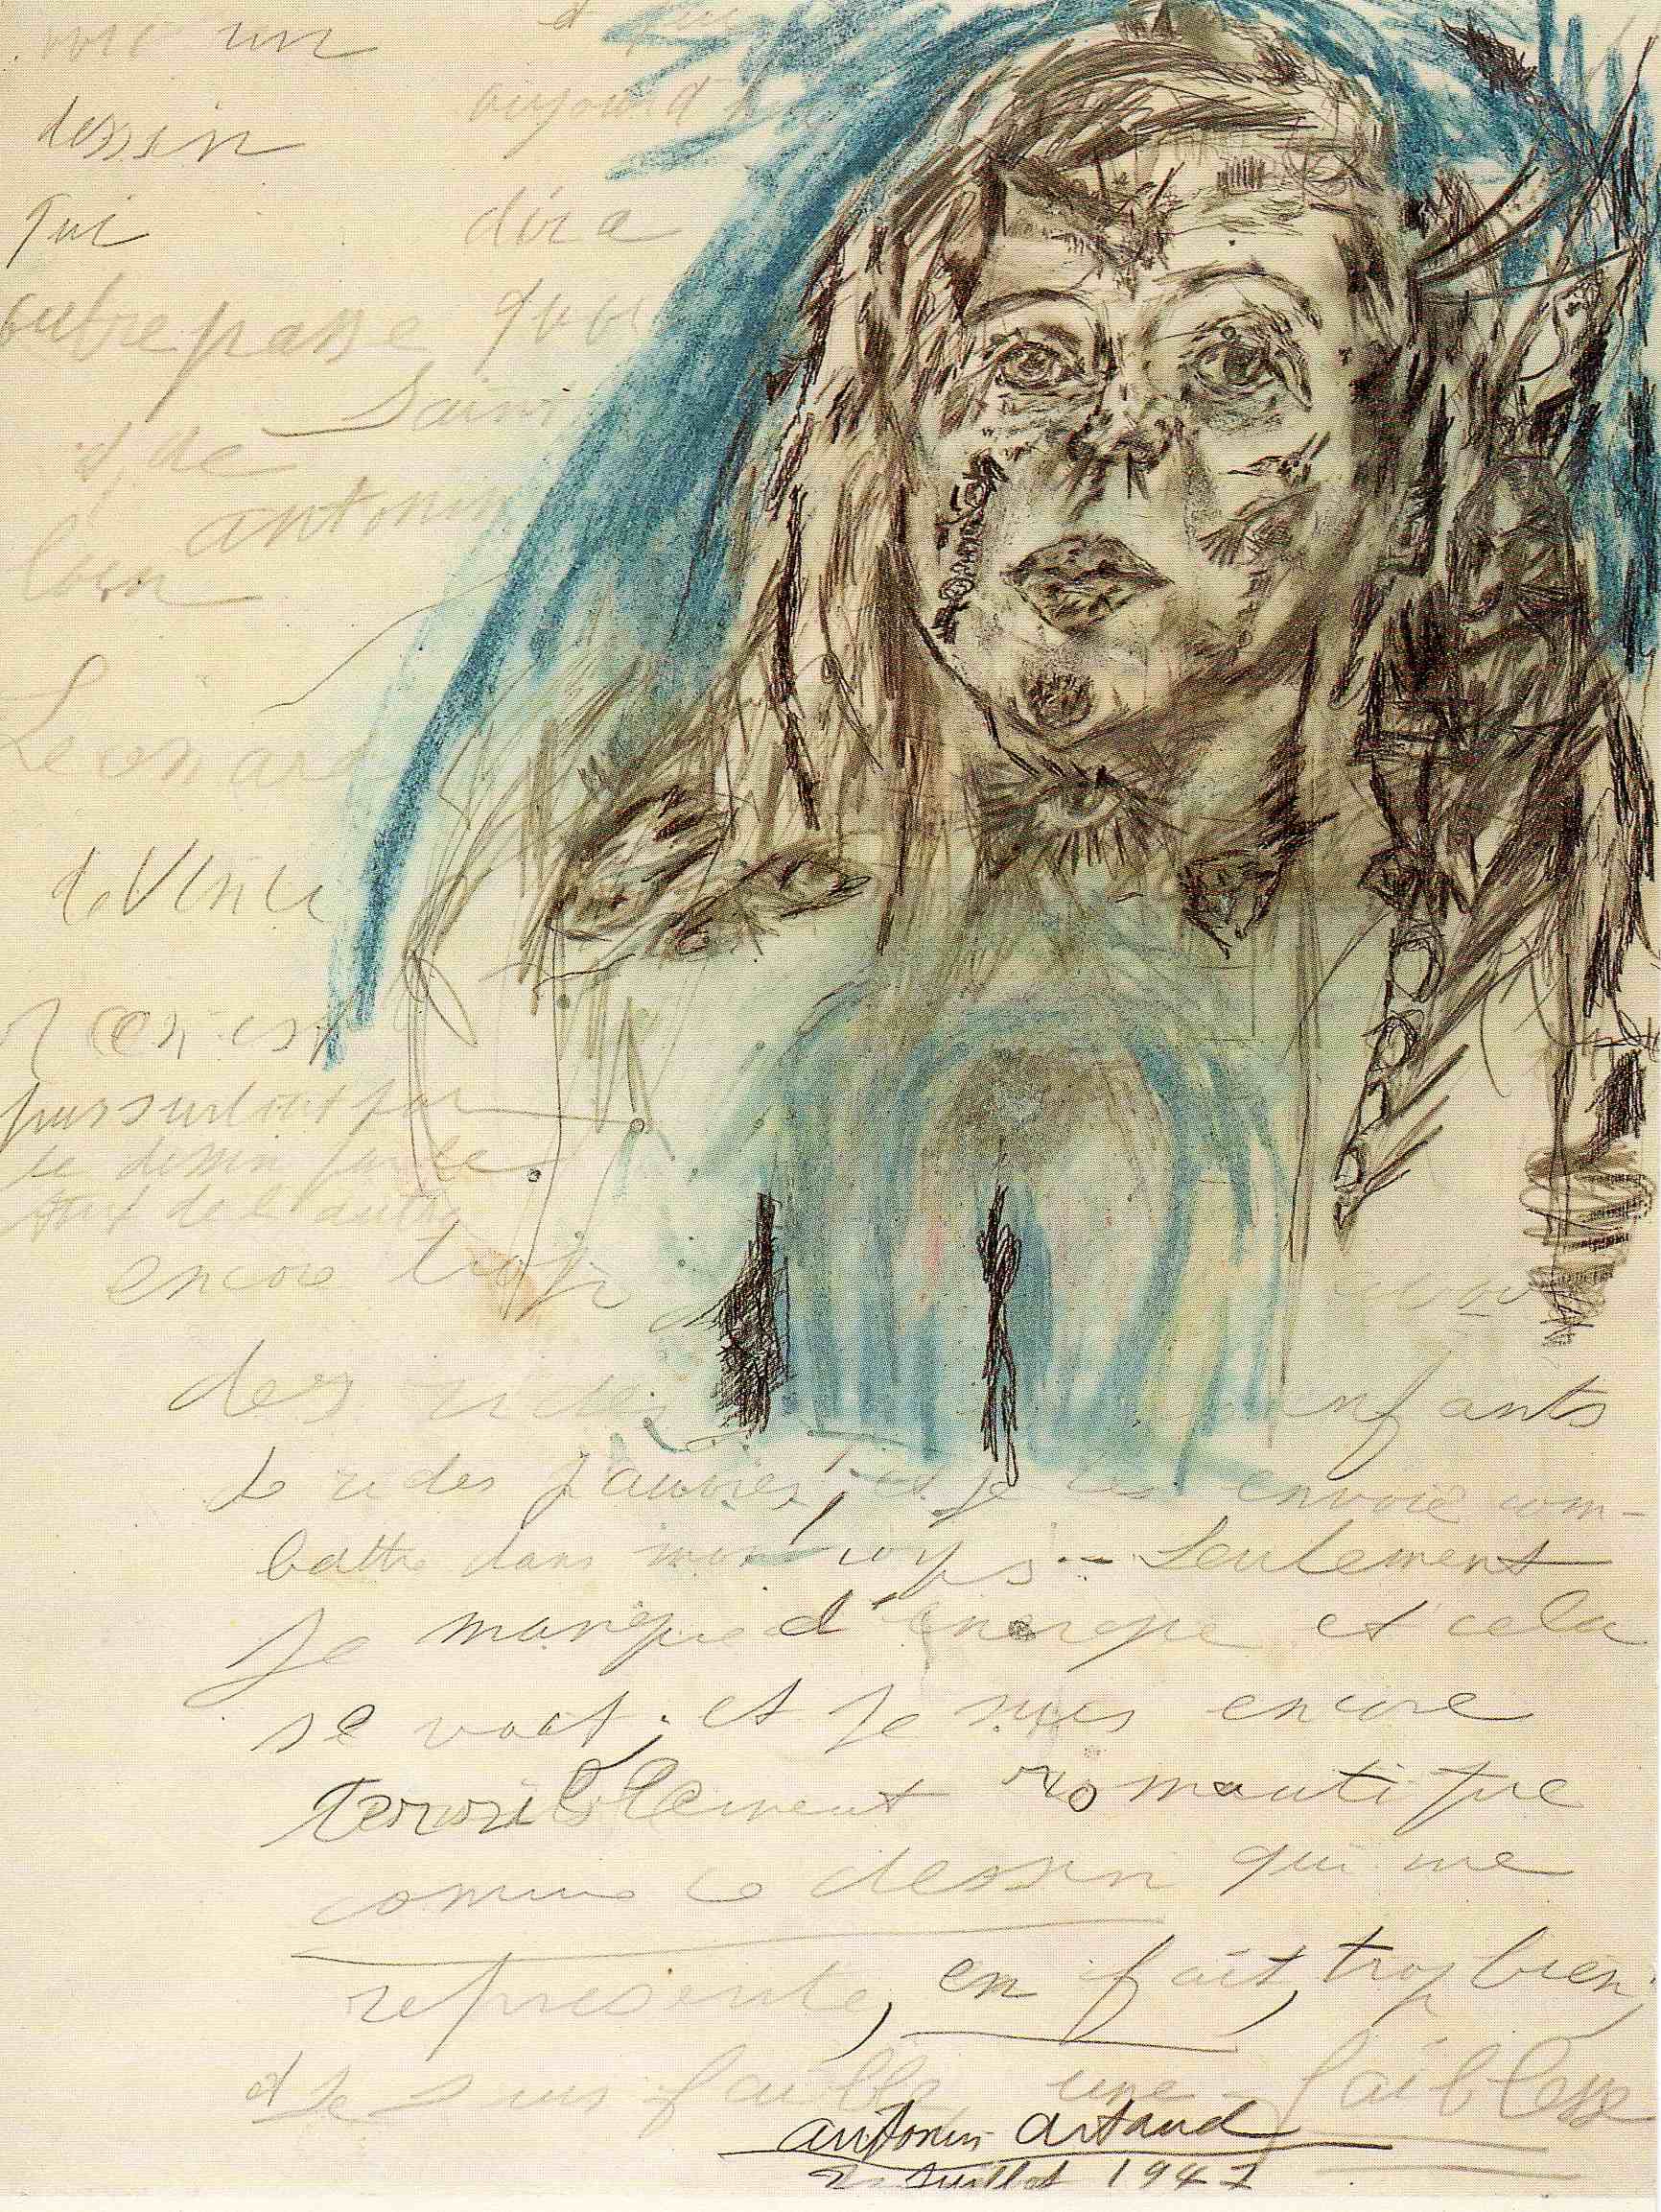 voic un
dessin
qui
outrepasse
et de
loin
Leonard
de Vinci
aujourd'h
dira
que
Saint
antonin
ce n'est
pas surtout par
le dessin
encore trop
des enfants
et des pauvres, et je les envoie com-
battre dans mon corps. - Seulement
Je manque d'énergie et cela
se voit, et je suis encore
terriblement romantique
comme ce dessin qui me
represente, en fait, trop bien,
et Je suis faible, une faiblesse
antonin Artaud
Juillet 1947